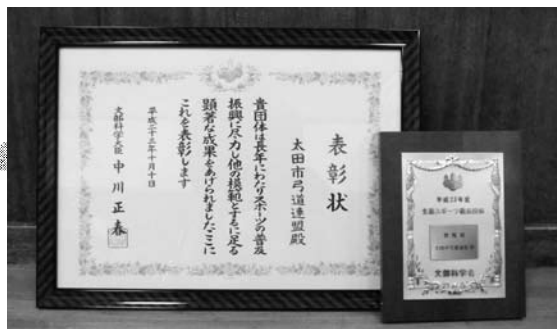 表彰状
太田市弓道連盟殿
貴団体は長年にわたりスポーツの普及
振興に尽力し他の模範とするに足る
顕著な成果をあげられましたここに
これを表彰します
平成二十三年十月十日
文部科学大臣 中川正春
平成23年度
生涯スポーツ優良団体
文部科学省